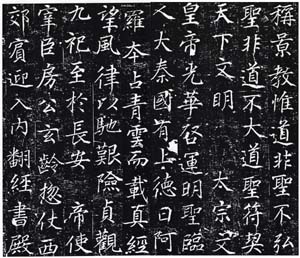 稱景教惟道非聖不弘
聖非道不大道聖符契
天下文明 太宗文
皇帝光華啓運明聖臨
人大秦國有上德曰阿
羅本占青雲而載真經
望風律以馳艱險貞觀
九祀至於長安 帝使
宰臣房公玄齡惣仗西
郊賓迎入內翻經書殿